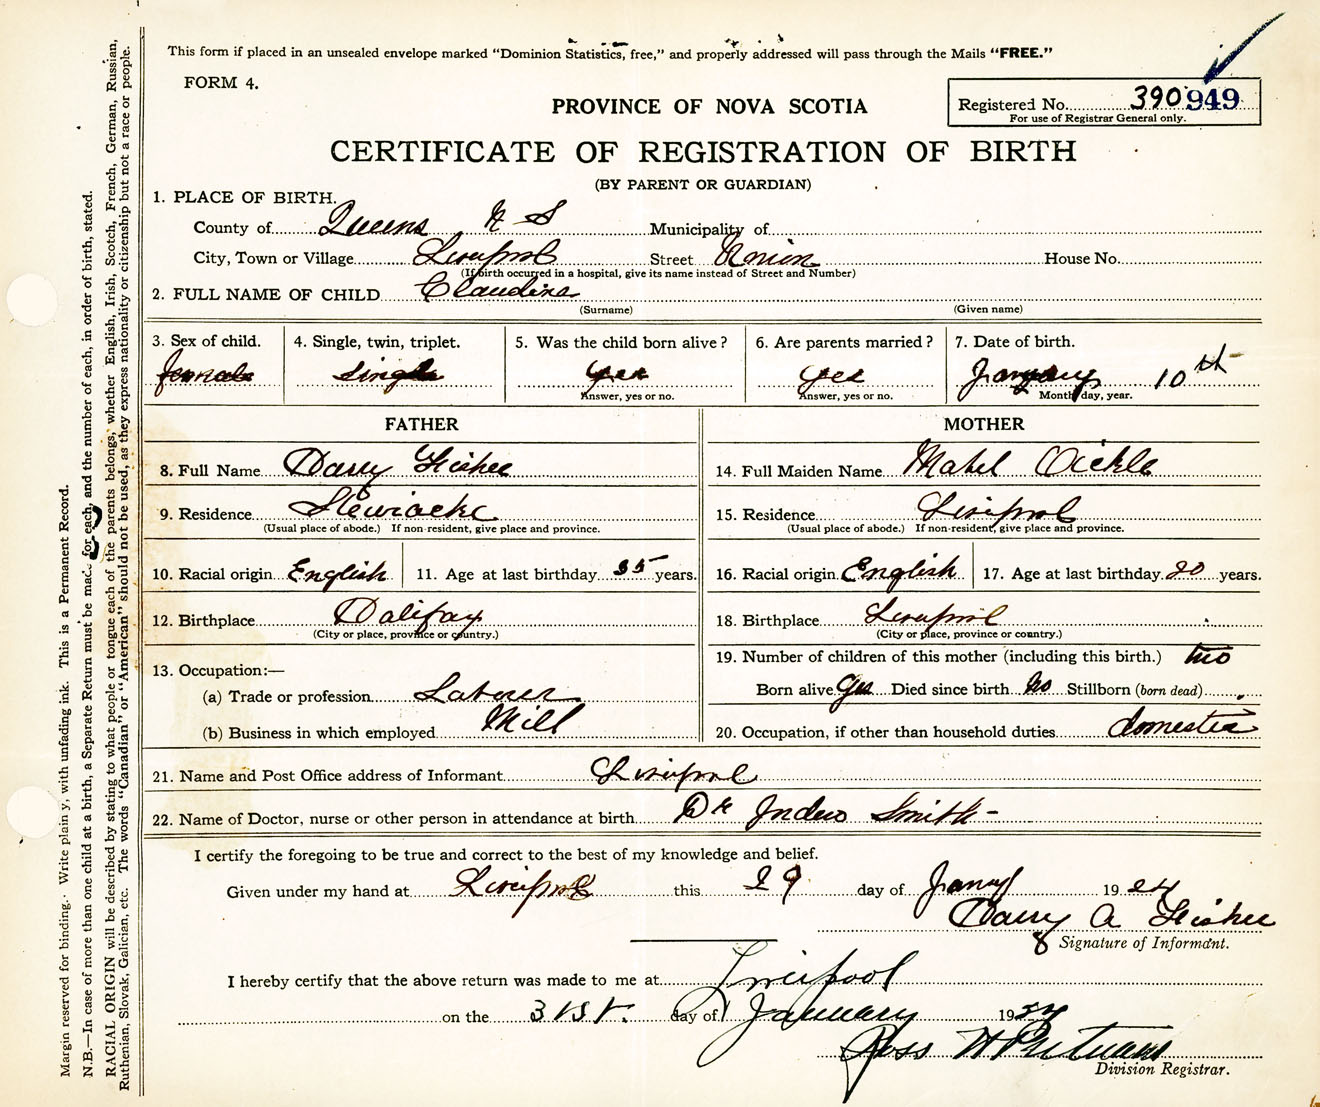 This form if placed in an unsealed envelope marked “Dominion Statistics, free,” and properly addressed will pass through the Mails “FREE.”
FORM 4.
PROVINCE OF NOVA SCOTIA
Registered No. 390949
For use of Registrar General only.
CERTIFICATE OF REGISTRATION OF BIRTH
(BY PARENT OR GUARDIAN)
1. PLACE OF BIRTH.
County of Queens N S Municipality of
City, Town or Village Liverpool Street Union House No.
(If birth occurred in a hospital, give its name instead of Street and Number)
2. FULL NAME OF CHILD Claudina
(Surname) (Given name)
3. Sex of child. 4. Single, twin, triplet. 5. Was the child born alive? 6. Are parents married? 7. Date of birth.
female single yes yes January 10th
Answer, yes or no. Answer, yes or no. Month, day, year.
FATHER MOTHER
8. Full Name Harry Fisher 14. Full Maiden Name Mabel Oickle
9. Residence Stewiacke 15. Residence Liverpool
(Usual place of abode.) If non-resident, give place and province. (Usual place of abode.) If non-resident, give place and province.
10. Racial origin English 11. Age at last birthday 35 years. 16. Racial origin English 17. Age at last birthday 20 years.
12. Birthplace Halifax 18. Birthplace Liverpool
(City or place, province or country.) (City or place, province or country.)
13. Occupation:— 19. Number of children of this mother (including this birth.) two
(a) Trade or profession Laborer Born alive yes Died since birth no Stillborn (born dead)
(b) Business in which employed Mill 20. Occupation, if other than household duties domestic
21. Name and Post Office address of Informant Liverpool
22. Name of Doctor, nurse or other person in attendance at birth Dr Smith
I certify the foregoing to be true and correct to the best of my knowledge and belief.
Given under my hand at Liverpool this 29 day of Jany 1924
Harry A Fisher
8 Signature of Informant.
I hereby certify that the above return was made to me at Liverpool
on the 31st. day of January 1924
Ross H Putnam
Division Registrar.
Margin reserved for binding. Write plainly, with unfading ink. This is a Permanent Record.
N.B.—In case of more than one child at a birth, a Separate Return must be made for each, and the number of each, in order of birth, stated.
RACIAL ORIGIN will be described by stating to what people or tongue each of the parents belongs, whether English, Irish, Scotch, French, German, Russian,
Ruthenian, Slovak, Galician, etc. The words “Canadian” or “American” should not be used, as they express nationality or citizenship but not a race or people.